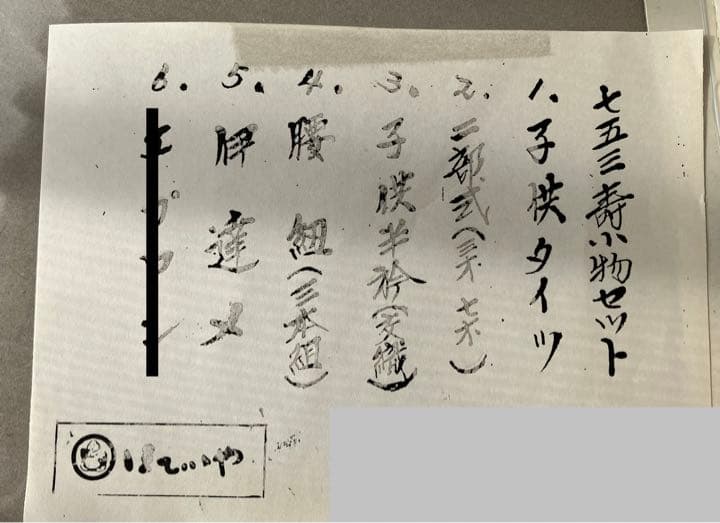 七五三寿小物セット
1. 子供タイツ
2. 二部式(三才 七才)
3. 子供半衿(交織)
4. 腰紐(三本組)
5. 伊達〆
6. エプロン
ほていや